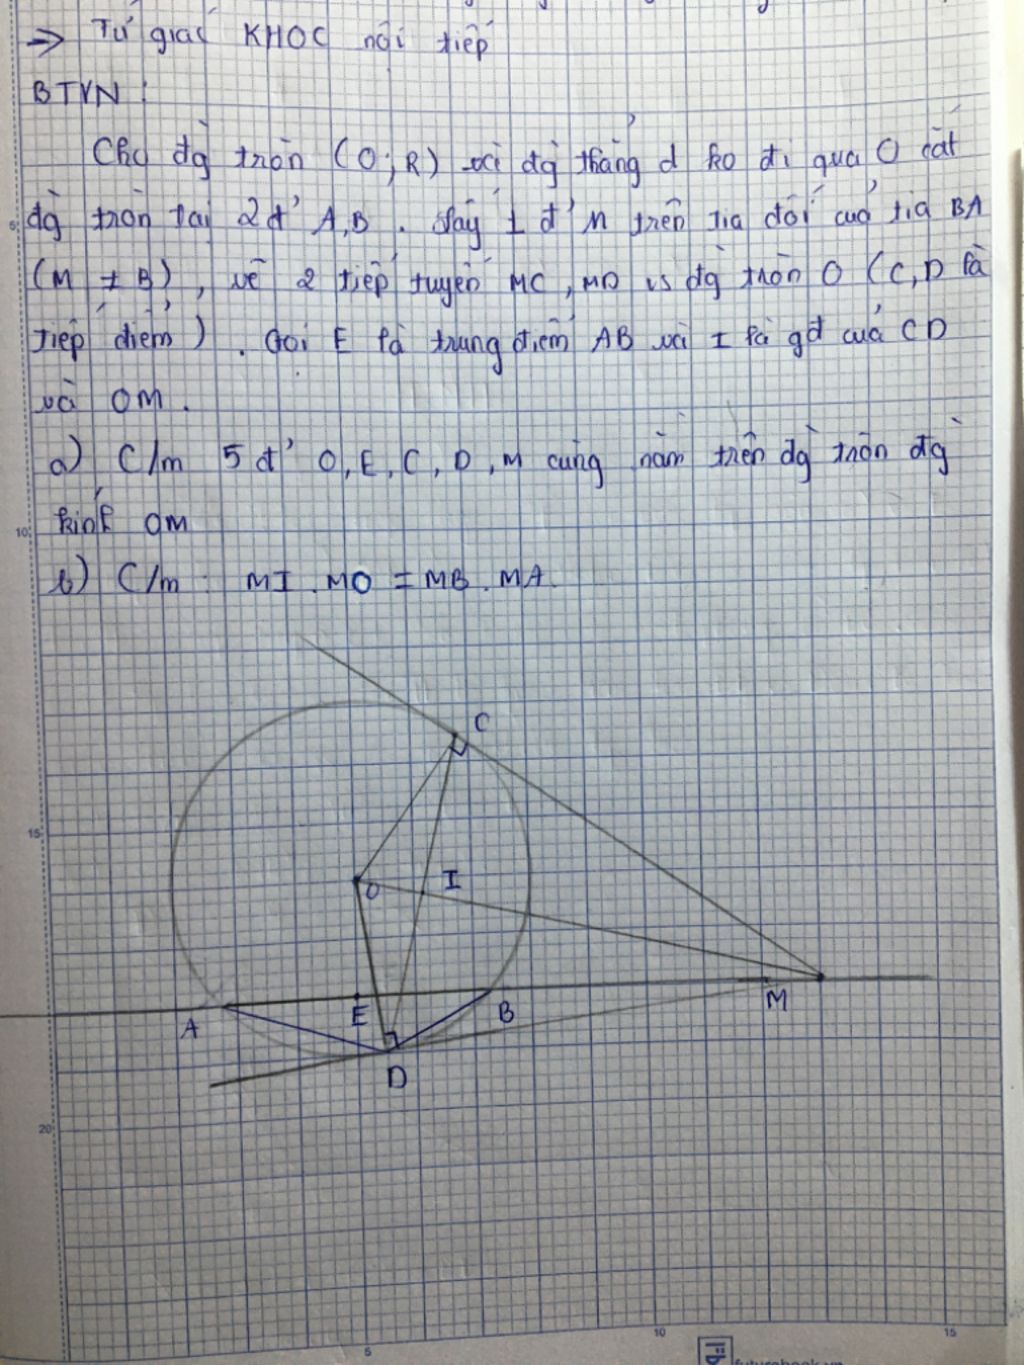 → Tứ giác KHOC nội tiếp
BTVN :
Cho đg tròn (O;R) và đg thẳng d ko đi qua O cắt
đg tròn tại 2đ' A,B . Lấy 1 đ' M trên tia đối của tia BA
(M ≠ B) , vẽ 2 tiếp tuyến MC, MD vs đg tròn O (C,D là
tiếp điểm) . Gọi E là trung điểm AB và I là gđ của CD
và OM .
a) C/m 5 đ' O, E, C, D, M cùng nằm trên đg tròn đg
kính OM
b) C/m : MI . MO = MB . MA.
C
O
I
A
E
B
M
D
5
10
15
20
5
10
15